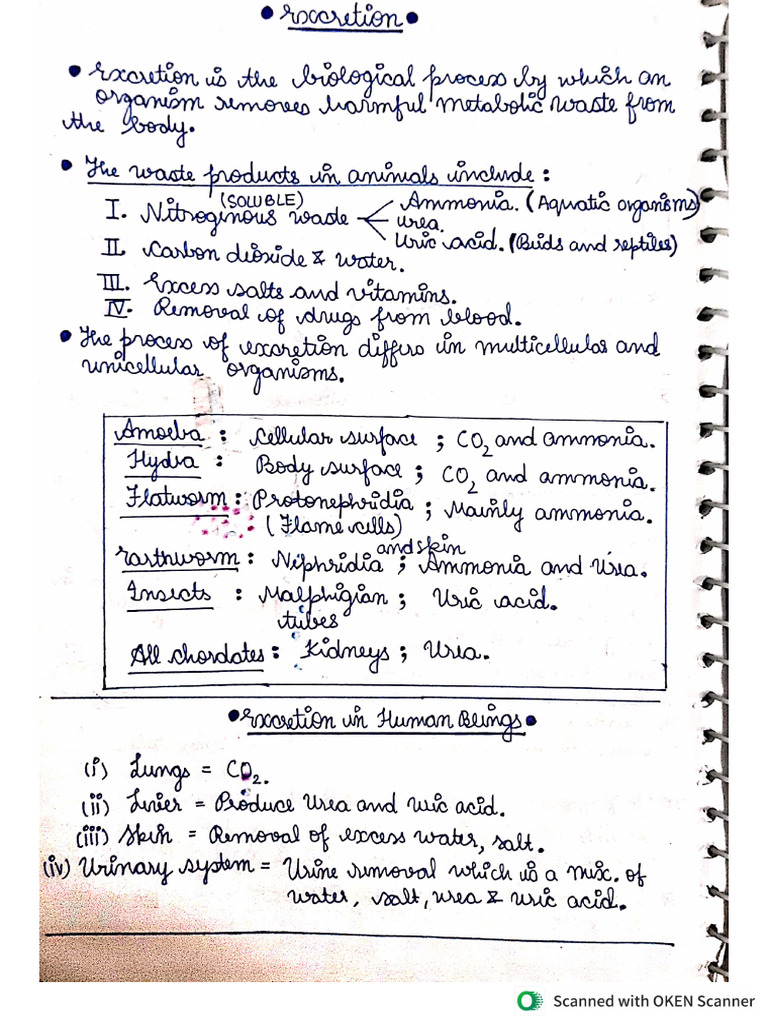 • Excretion •
• Excretion is the biological process by which an
organism removes harmful metabolic waste from
the body.
• The waste products in animals include :
(SOLUBLE)
I. Nitroginous waste
Ammonia. (Aquatic organisms)
urea.
Uric acid. (Birds and reptiles)
II. Carbon dioxide & water.
III. Excess salts and vitamins.
IV. Removal of drugs from blood.
• The process of excretion differs in multicellular and
unicellular organisms.
Amoeba : Cellular surface ; CO2 and ammonia.
Hydra : Body surface ; CO2 and ammonia.
Flatworm : Protonephridia ; Mainly ammonia.
: (Flame cells)
and skin
Earthworm : Nephridia ; Ammonia and Urea.
Insects : Malphigian ; Uric acid.
tubes
All chordates : Kidneys ; Urea.
• Excretion in Human Beings •
(i) Lungs = CO2.
(ii) Liver = Produce Urea and uric acid.
(iii) Skin = Removal of excess water, salt.
(iv) Urinary system = Urine removal which is a mix. of
water, salt, urea & uric acid.
Scanned with OKEN Scanner